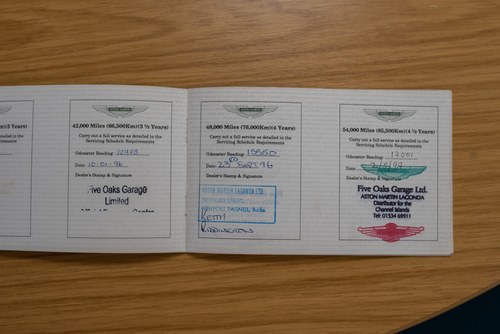 3 Years)
42,000 Miles (66,500Km)(3 ½ Years)
Carry out a full service as detailed in the
Servicing Schedule Requirements
Odometer Reading:
Date: 10.01.96
Dealer's Stamp & Signature
Five Oaks Garage
Limited
48,000 Miles (76,000Km)(4 Years)
Carry out a full service as detailed in the
Servicing Schedule Requirements
Odometer Reading: 15550
Date: 23rd Sept 96
Dealer's Stamp & Signature
ASTON MARTIN LAGONDA LTD.
KEITH
54,000 Miles (85,500Km)(4 ½ Years)
Carry out a full service as detailed in the
Servicing Schedule Requirements
Odometer Reading: 17001
Date:
Dealer's Stamp & Signature
Five Oaks Garage Ltd.
ASTON MARTIN LAGONDA
Distributor for the
Channel Islands
Tel: 01534 69911